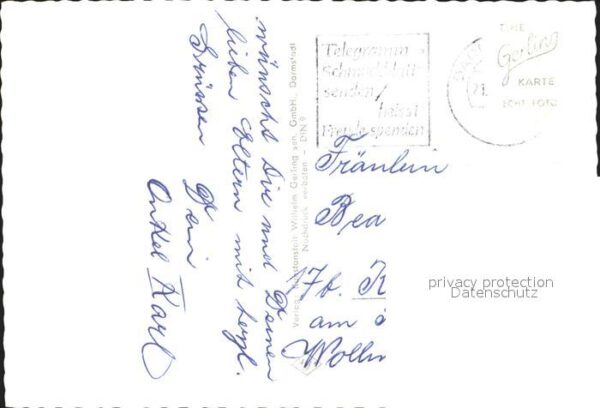 wünscht Dir und Deinen
lieben Eltern mit herzl.
Grüssen Dein
Onkel Karl
Verlag Kunstanstalt Wilhelm Gerling sen. GmbH., Darmstadt
Nachdruck verboten - DIN 9
Telegramm
Schmuckblatt
senden /
heisst
Freude spenden
EINE
Gerling
KARTE
ECHT FOTO
Fräulein
Bea
17b. K
am
Wolln
privacy protection
Datenschutz